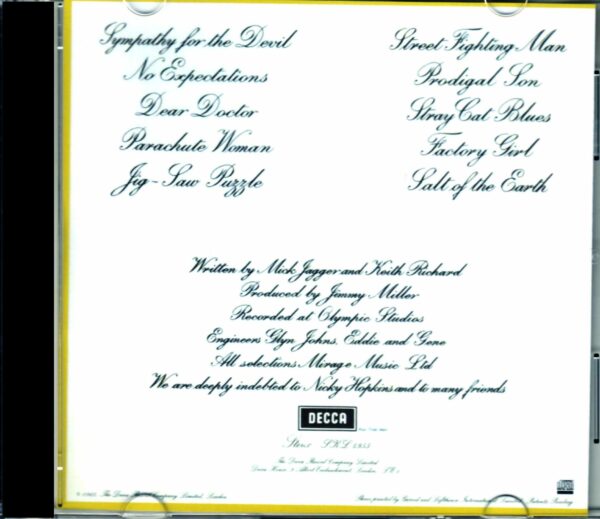 Sympathy for the Devil
No Expectations
Dear Doctor
Parachute Woman
Jig-Saw Puzzle
Street Fighting Man
Prodigal Son
Stray Cat Blues
Factory Girl
Salt of the Earth
Written by Mick Jagger and Keith Richard
Produced by Jimmy Miller
Recorded at Olympic Studios
Engineers Glyn Johns, Eddie and Gene
All selections Mirage Music Ltd
We are deeply indebted to Nicky Hopkins and to many friends
DECCA
Stereo SKL 4955
The Decca Record Company Limited
Decca House, Albert Embankment, London
The Decca Record Company Limited, London